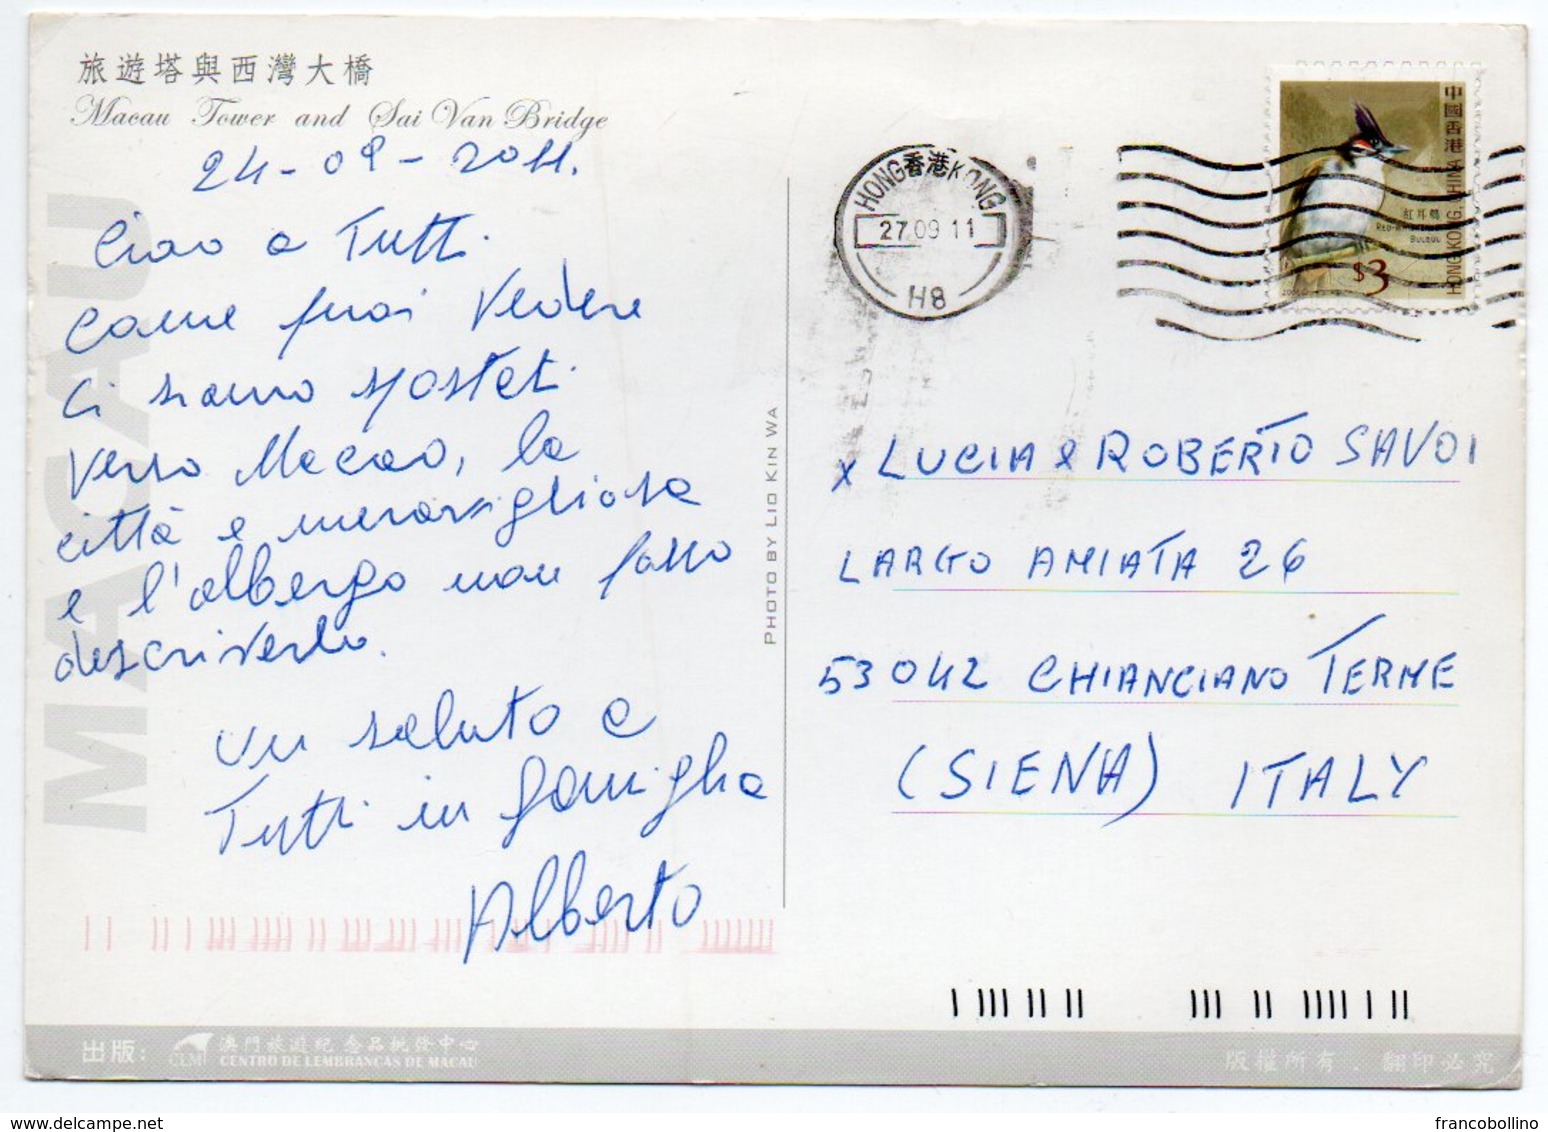 旅遊塔與西灣大橋
Macau Tower and Sai Van Bridge
24-09-2011.
Ciao a Tutti.
Come puoi vedere
ci siamo spostati
verso Macao, la
città e meravigliosa
e l'albergo non posso
descriverlo.
Un saluto a
Tutti in famiglia
Alberto
MACAU
PHOTO BY LIO KIN WA
HONG香港KONG
27.09 11
H8
中國香港
HONG KONG, CHINA
紅耳鵯
RED-WHISKERED
BULBUL
$3
x LUCIA & ROBERTO SAVOI
LARGO AMIATA 26
53042 CHIANCIANO TERME
(SIENA) ITALY
出版：
CLM
澳門旅遊紀念品批發中心
CENTRO DE LEMBRANCAS DE MACAU
版權所有．翻印必究
francobollino